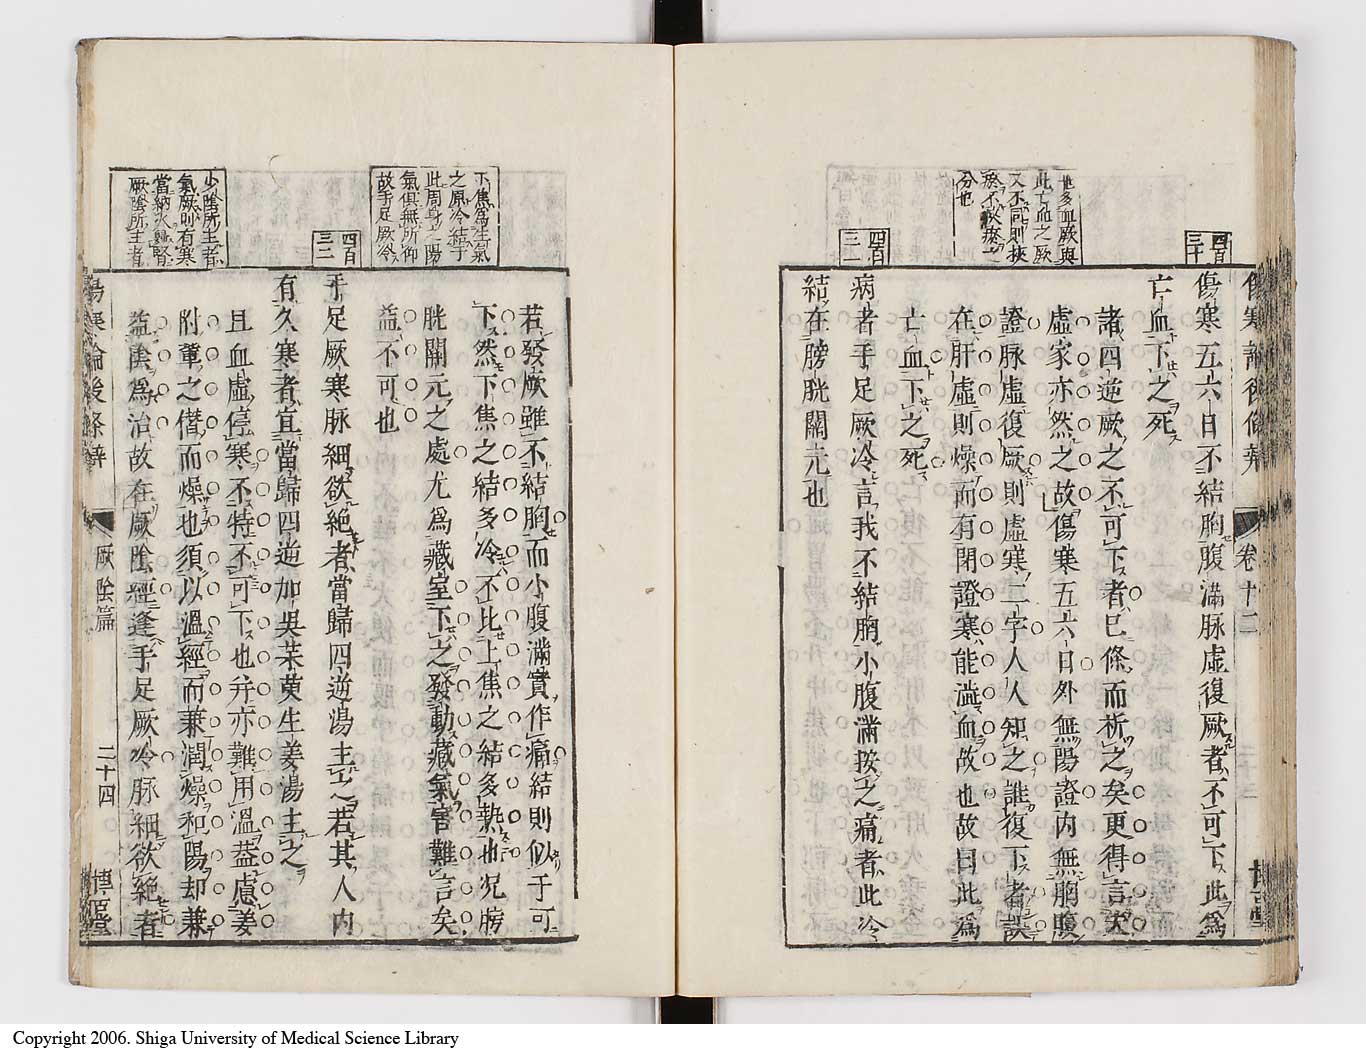 傷寒論後條辨
卷十二
四百三十
傷寒五六日不結胸腹滿脉虛復厥者不可下此爲
亡血下之死
諸四逆厥之不可下者已條而析之矣更得言
虛家亦然之故傷寒五六日外無陽證內無胸腹
證脉虛復厥則虛寒二字人人知之誰復下者誤
在肝虛則燥而有閉證寒能澁血故也故曰此爲
亡血下之死
也多血厥與
此亡血之厥
又不同則挾
瘀不挾瘀之
分也
四百三一
病者手足厥冷言我不結胸小腹滿按之痛者此冷
結在膀胱關元也
若發厥雖不結胸而小腹滿實作痛結則似于可
下然下焦之結多冷不比上焦之結多熱也况膀
胱關元之處尤爲藏室下之發動藏氣害難言矣
益不可也
下焦爲生氣
之原冷結于
此周身之陽
氣俱無所仰
故手足厥冷
四百三二
手足厥寒脉細欲絕者當歸四逆湯主之若其人內
有久寒者宜當歸四逆加吳茱萸生姜湯主之
且血虛停寒不特不可下也并亦難用溫益慮姜
附輩之僭而燥也須以溫經而兼潤燥和陽却兼
益陰爲治故在厥陰經逢手足厥冷脉細欲絕者
少陰所主者
氣厥則有寒
當納火歸腎
厥陰所主者
傷寒論後條辨
厥陰篇
二十四
博古堂
Copyright 2006. Shiga University of Medical Science Library